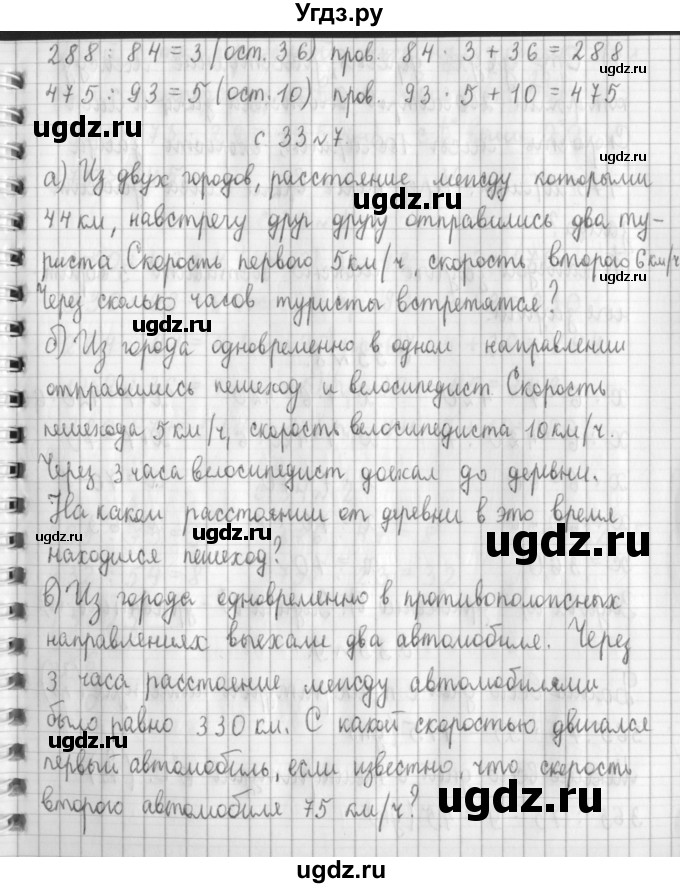 Угдз.ру
288 : 84 = 3 (ост. 36) пров. 84 · 3 + 36 = 288
475 : 93 = 5 (ост. 10) пров. 93 · 5 + 10 = 475
ugdz.ru
с 33 №7
ugdz.ru
а) Из двух городов, расстояние между которыми
ugdz.ru
44 км, навстречу друг другу отправились два ту-
риста. Скорость первого 5 км/ч, скорость второго 6 км/ч
Через сколько часов туристы встретятся?
ugdz.ru
б) Из города одновременно в одном направлении
отправились пешеход и велосипедист Скорость
пешехода 5 км/ч, скорость велосипедиста 10 км/ч.
Через 3 часа велосипедист доехал до деревни.
На каком расстоянии от деревни в это время
ugdz.ru ugdz.ru ugdz.ru
находился пешеход?
в) Из города одновременно в противоположных
направлениях выехали два автомобиля. Через
ugdz.ru
3 часа расстояние между автомобилями
было равно 330 км. С какой скоростью двигался
ugdz.ru
первый автомобиль, если известно, что скорость
второго автомобиля 75 км/ч?
ugdz.ru
ugdz.ru